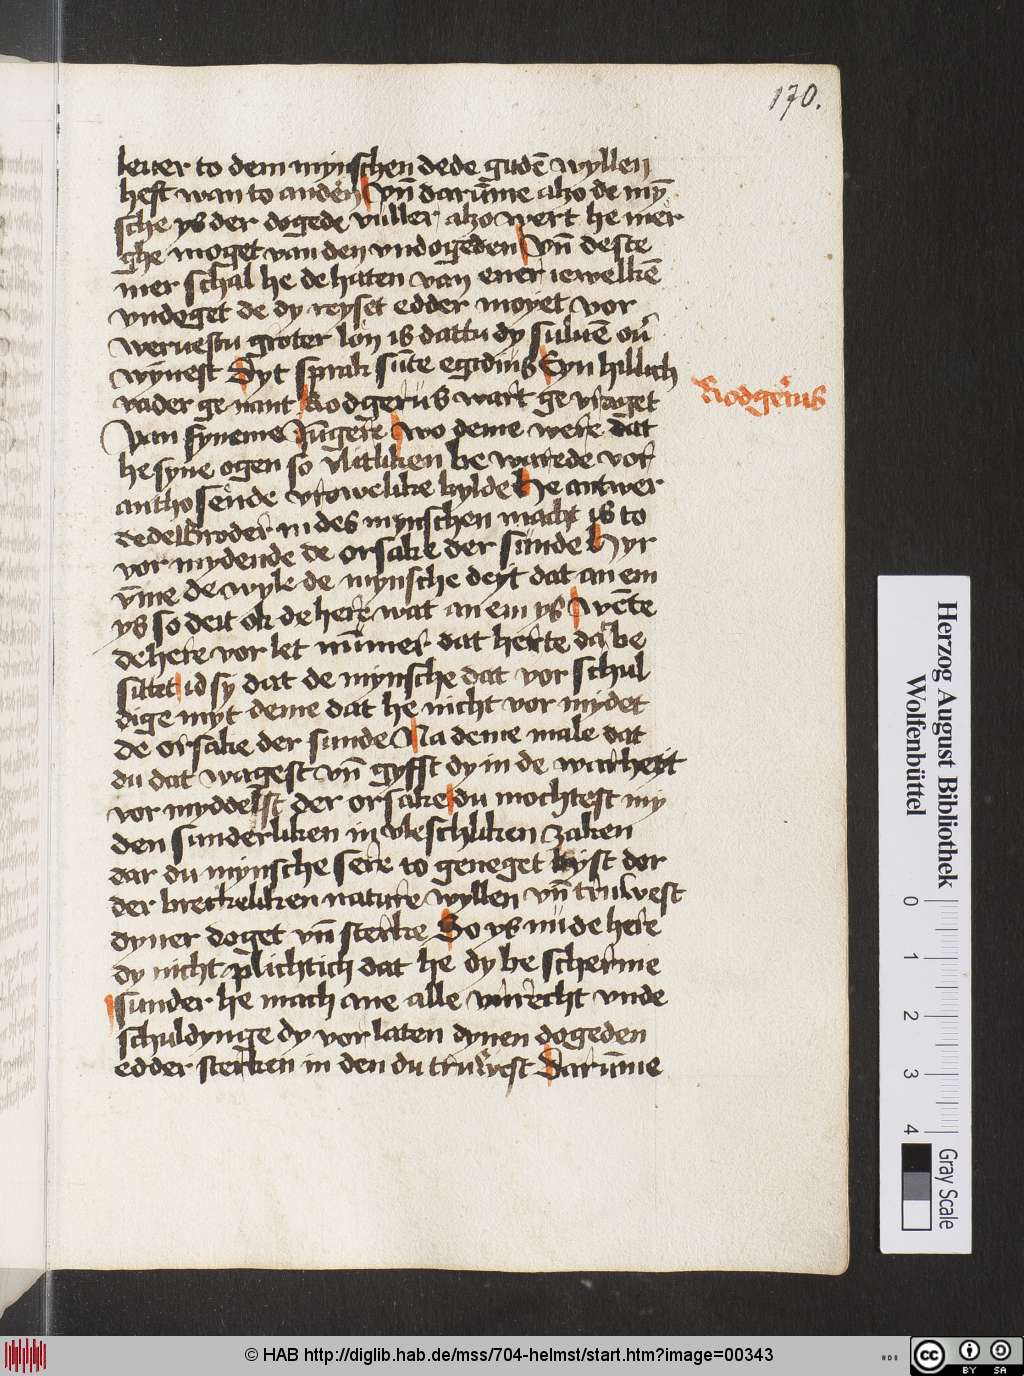 170.
leuer to dem mynschen dede gudē wyllen
heft wan to anden vn̄ darūme alzo de mȳ
sche ys der dogede vuller alzo wert he mer
ghe moget van den vndogeden Vn̄ deste
mer schal he de haten van ener iewelkē
vndoget de dy reyset edder moyet vor
weruestu groter lon is dattu dy suluē ou̓
wȳnest Dyt sprak sūte egidius Eyn hillich
vader ge nant Rodgerus wart ge vraget
Rodgerius
Van syneme Jūgere wo deme were dat
he syne ogen so vlitliken be warede vor
antho sende vrowelike bylde He antwer
dede Broder in des mynschen macht is to
vor mydende de orsake der sunde Hyr
v̄me de wyle de mynsche deyt dat an em
ys so deit ok de here wat an em ys Wēte
de here vor let nūmer dat herte dat be
sittet id sy dat de mynsche dat vor schul
dige myt deme dat he nicht vor mydet
de orsake der sunde Na deme male dat
du dat wagest vn̄ gyfst dy in de warheyt
vor myddelst der orsake du mochtest my
den sunderliken in vleschliken zaken
dar du mynsche sere to geneget byst dor
der brekeliken nature wyllen vn̄ truwest
dyner doget vn̄ sterke So ys nu de here
dy nicht plichtich dat he dy be scherme
sunder he mach ane alle vnrecht vnde
schuldynge dy vor laten dynen dogeden
edder sterken in den du truwest Darūme
Herzog August Bibliothek
Wolfenbüttel
0 1 2 3 4
Gray Scale
© HAB http://diglib.hab.de/mss/704-helmst/start.htm?image=00343
cc BY SA